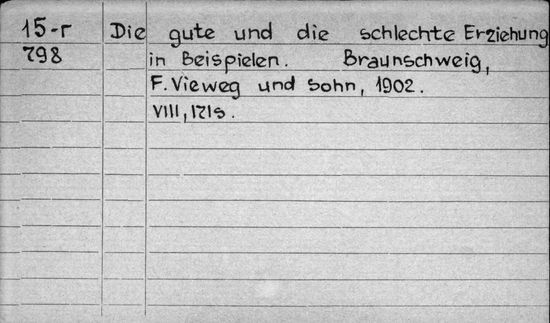 15-r Die gute und die schlechte Erziehung
798 in Beispielen. Braunschweig,
F. Vieweg und Sohn, 1902.
VIII, 171s.